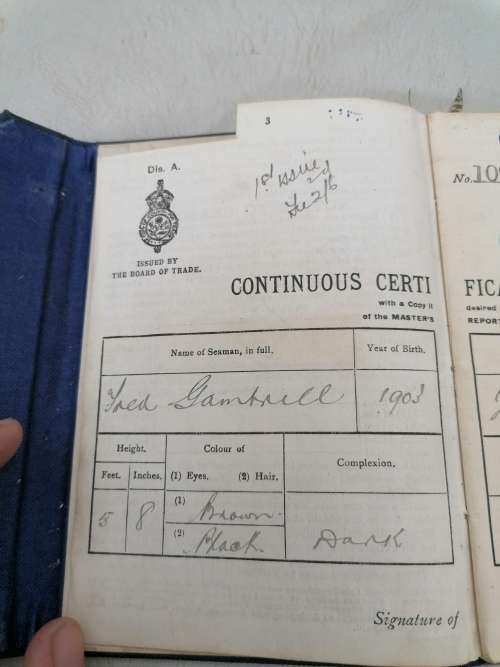 3
Dis. A.
1st issued
ISSUED BY
THE BOARD OF TRADE.
No. 10
CONTINUOUS CERTI
FICA
with a Copy
desired
of the MASTER'S
REPOR
Name of Seaman, in full.
Year of Birth.
Fred Gambrell
1903
Height.
Colour of
Complexion.
Feet.
Inches.
(1) Eyes. (2) Hair.
5
8
(1) Brown.
(2) Black
Dark
Signature of